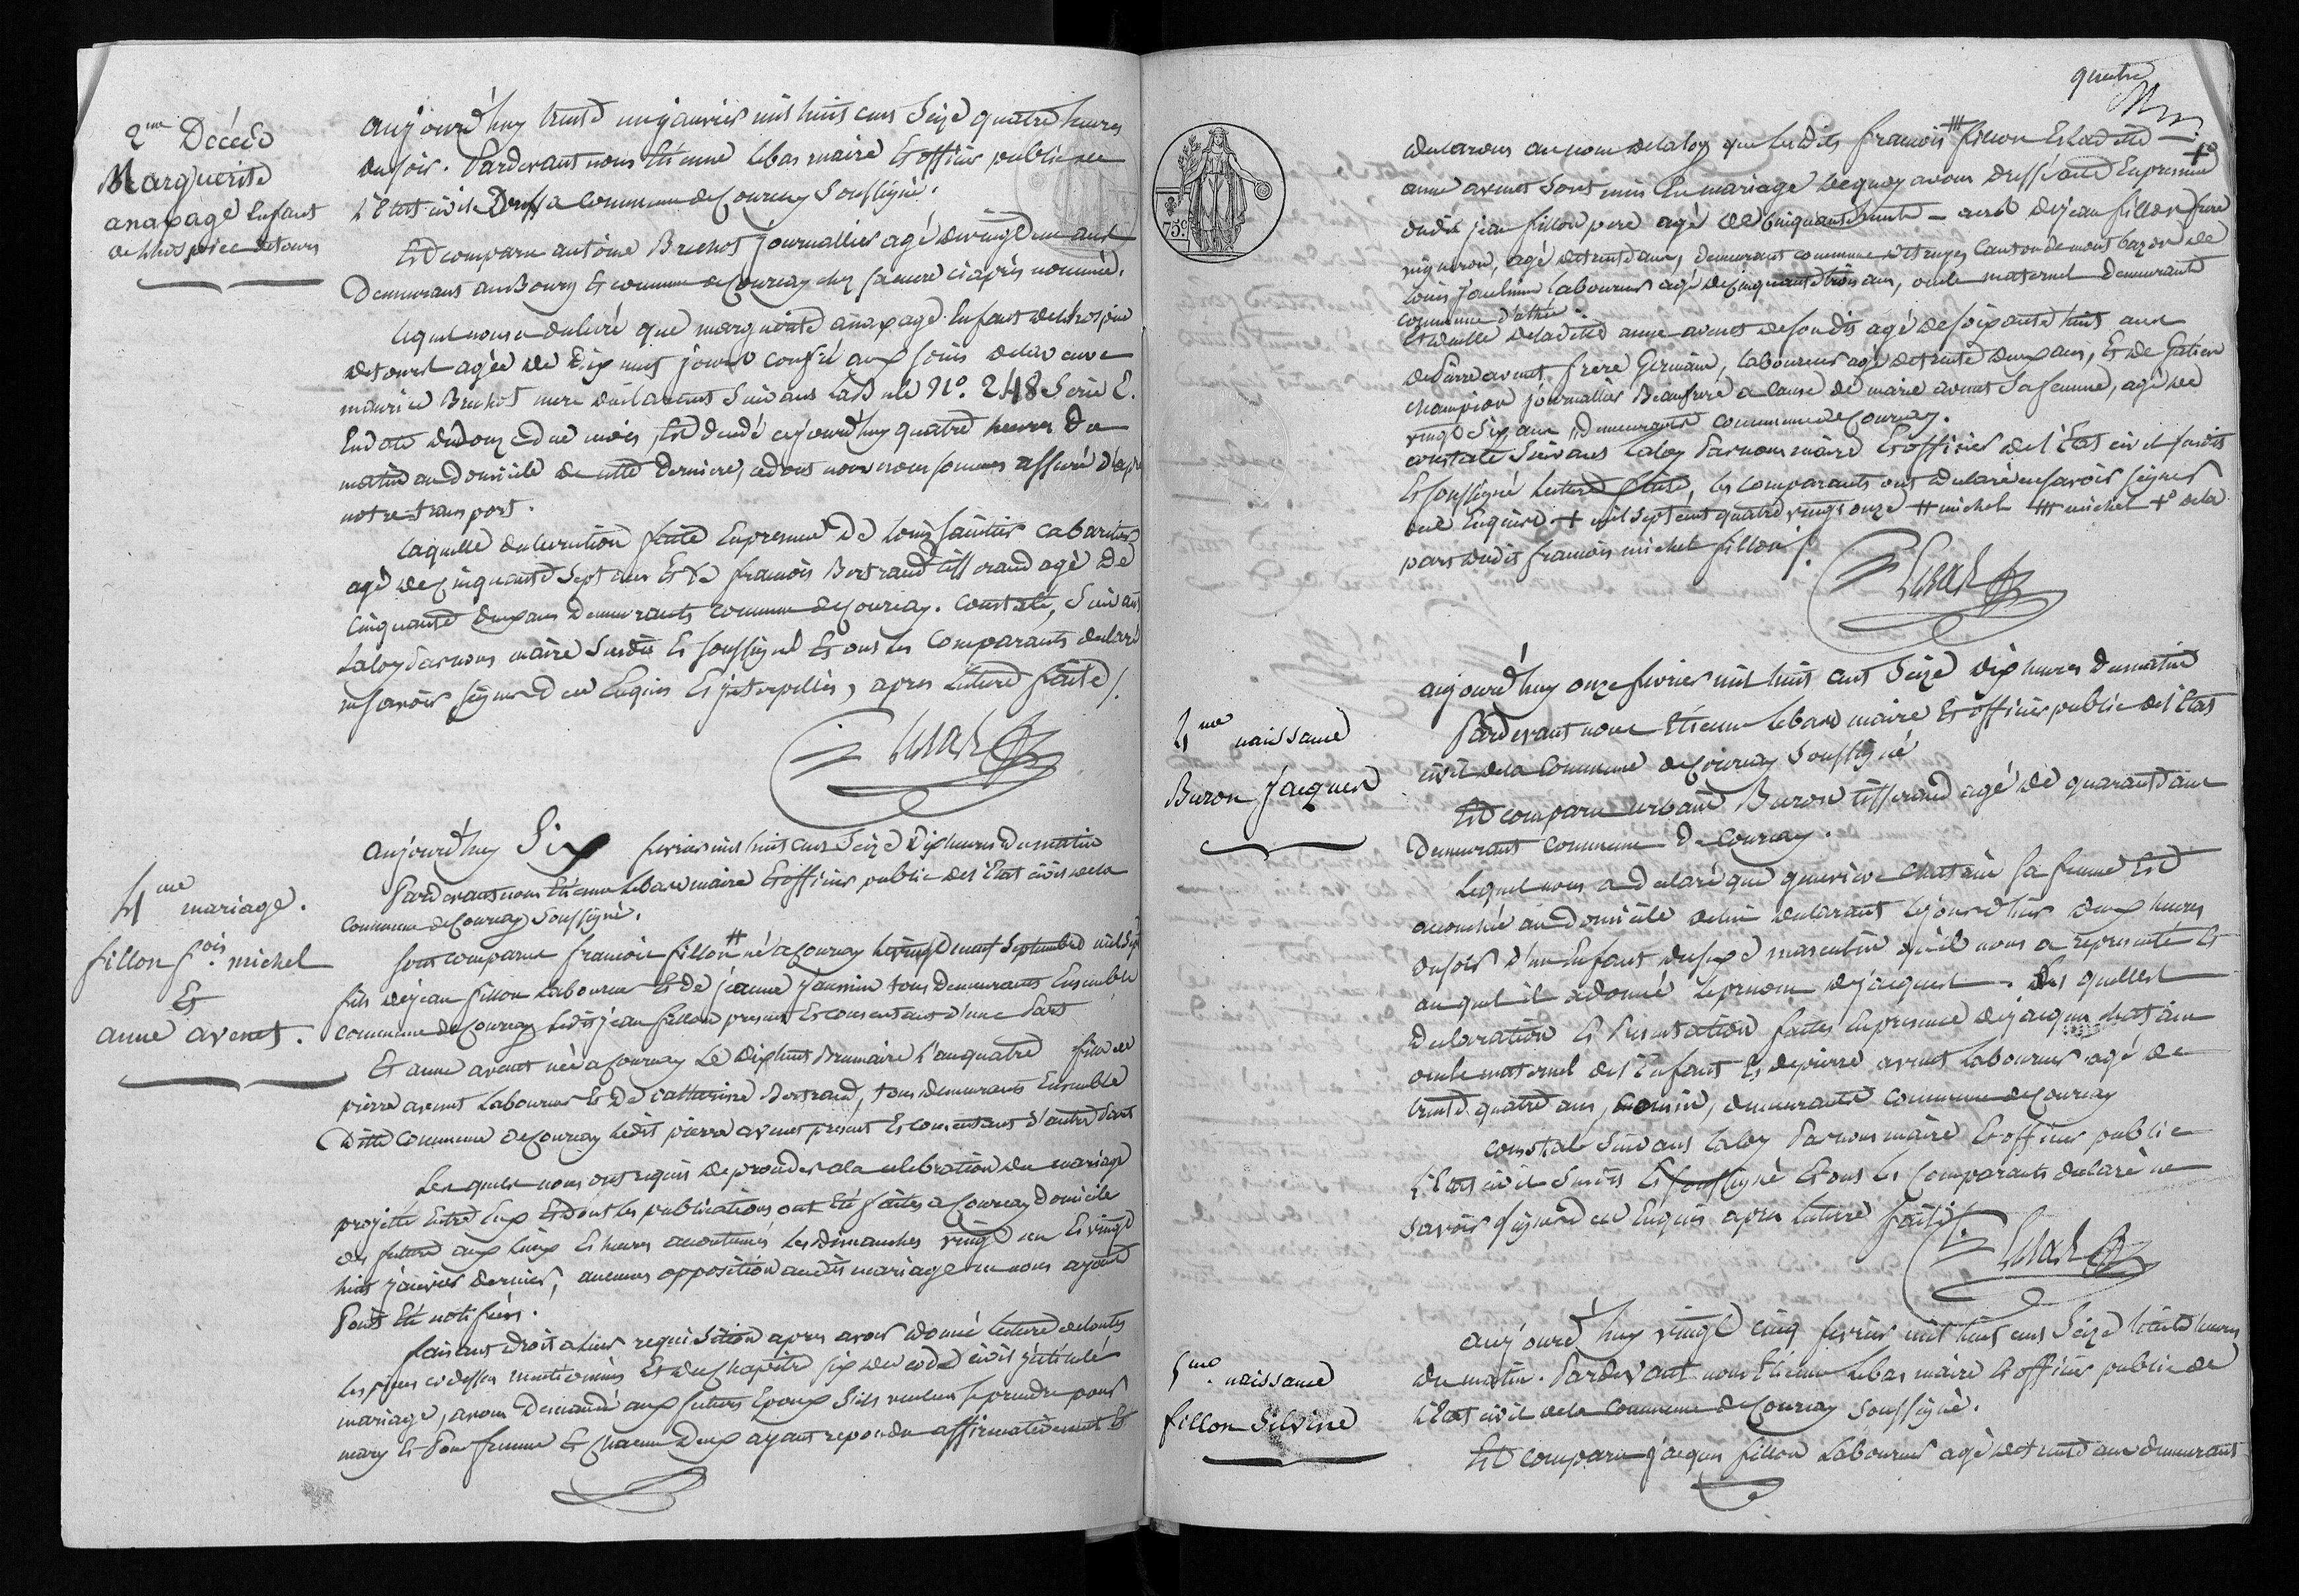 2.me Décéde
Marguerite
anaxagé Enfant
de l'hospice de tours
aujourd'huy trente un janvier mil huit cent Seize quatre heures
du soir. Pardevant nous Etienne Lebas maire Et officier public de
L'Etat civil De la Commune de Courçay Soussigné.
Est comparu antoine Bruhot journallier agé de vingt un ans
Demeurant au Bourg Et commune de Courçay chez sa mere ci après nommée.
Lequel nous a declaré que marguerite anaxagé Enfant de l'hospice
de tours agée de Dix huit jours confié aux soins de la veuve
maurice Bruhot mere du declarant Suivant La Bule N.o 248 Serie E.
En date du douze de ce mois, Est decedé cejourd'huy quatre heures du
matin au domicile de cette derniere, ce dont nous nous sommes assuré d'après
notre transport.
Laquelle declaration faite En presence De Louis Sautier Cabaretier
agé de Cinquante Sept ans Et De francois Bertrand tisserand agé De
Cinquante deux ans Demeurants commune de Courçay. Constaté, Suivant
La loy Par nous maire Susdit Et soussigné Et ont les Comparants declaré
ne savoir signer De ce Enquis Et jnterpellés, apres Lecture faite /.
Lebas
4.me mariage.
fillon f.ois michel
Et
anne avenet.
aujourd'huy Six fevrier mil huit cent Seize Dix heures Du matin
Pardevant nous Etienne Lebas maire Et officier public de l'Etat civil de la
Commune de Courçay Soussigné.
Sont comparus francois fillon # né a Courçay Le vingt neuf Septembre mil Sept
fils de jean fillon Laboureur Et de jeanne jaunin tous demeurants Ensemble
Commune de Courçay Ledit jean fillon present Et consentant d'une Part
Et anne avenet née a Courçay Le Dix huit Brumaire L'an quatre fille de
pierre avenet Laboureur Et De Catherine Bertrand, tous demeurants Ensemble
Ditte Commune de Courçay Ledit pierre avenet present Et consentant d'autre Part
Lesquels nous ont requis de proceder a la celebration du mariage
projetté Entre Eux Et dont les publications ont Eté faites a Courçay Domicile
des futurs aux lieux Et heures accoutumés Les dimanches vingt un Et vingt
huit janvier dernier, aucunes opposition audit mariage ne nous ayant
Point Eté notifiées.
faisant droit a leur requisition apres avoir donné lecture de toutes
Les pieces ci dessus mentionnées Et du Chapitre six du code civil jntitulé
mariage, avons Demandé aux futurs Epoux S'ils veulent se prendre pour
mary Et Pour femme Et Chacun D'eux ayant repondu affirmativement Et
quatre
75c
declarons au nom de la loy que lesdits francois ### fillon Et ladite
anne avenet Sont unis En mariage De quoy avons dressé acte En presence +o
dudit jean fillon pere agé de Cinquante huit ans de jean fillon frere
vigneron, agé de trente ans, demeurant commune de truyes Canton de montbazon de
Louis jaulnin laboureur agé de Cinquante trois ans, oncle maternel demeurant
commune d'athée.
Et duelle de ladite anne avenet defendis agé de soixante huit ans
de Pierre avenet frere Germain, laboureur agé de trente deux ans, Et de Gatien
Champion journallier Beaufrere a cause de marie avenet Sa femme, agé de
vingt Six ans demeurants commune de Courçay.
Constaté Suivant La loy Par nous maire Et officier de l'Etat civil susdit
Et soussigné lecture faite, les comparants ont declaré ne savoir signer
de ce Enquis + mil sept cent quatre vingt onze # michel ### michel +o de la
part dudit francois michel fillon /.
Lebas
4.me naissance
Buron jacques
aujourd'huy onze fevrier mil huit cent Seize Dix heures Du matin
Pardevant nous Etienne Lebas maire Et officier public de l'Etat
civil de la Commune de Courçay Soussigné
Est comparu urbain Buron tisserand agé de quarante ans
Demeurant Commune De Courçay.
Lequel nous a declaré que genevieve Chataine sa femme Est
accouchée au domicile de lui declarant Le jour d'hier deux heures
du soir d'un Enfant du sexe masculin qu'il nous a representé Et
auquel il a donné le prenom de jacques. Les quelles
Declaration Et Presentation faites En presence de jacques chataine
oncle maternel de l'Enfant Et de pierre avenet Laboureur agé de
trente quatre ans, cousin, demeurants Commune de Courçay
Constaté Suivant La loy Par nous maire Et officier public
L'Etat civil Susdit Et soussigné Et ont les Comparants declaré ne
savoir signer De ce Enquis apres Lecture faite /.
Lebas
5.me naissance
fillon Silvine
aujourd'huy vingt cinq fevrier mil huit cent Seize huit heures
du matin. Pardevant nous Etienne Lebas maire Et officier public de
l'Etat civil de la Commune de Courçay Soussigné.
Est comparu jacques fillon Laboureur agé de trente ans demeurant